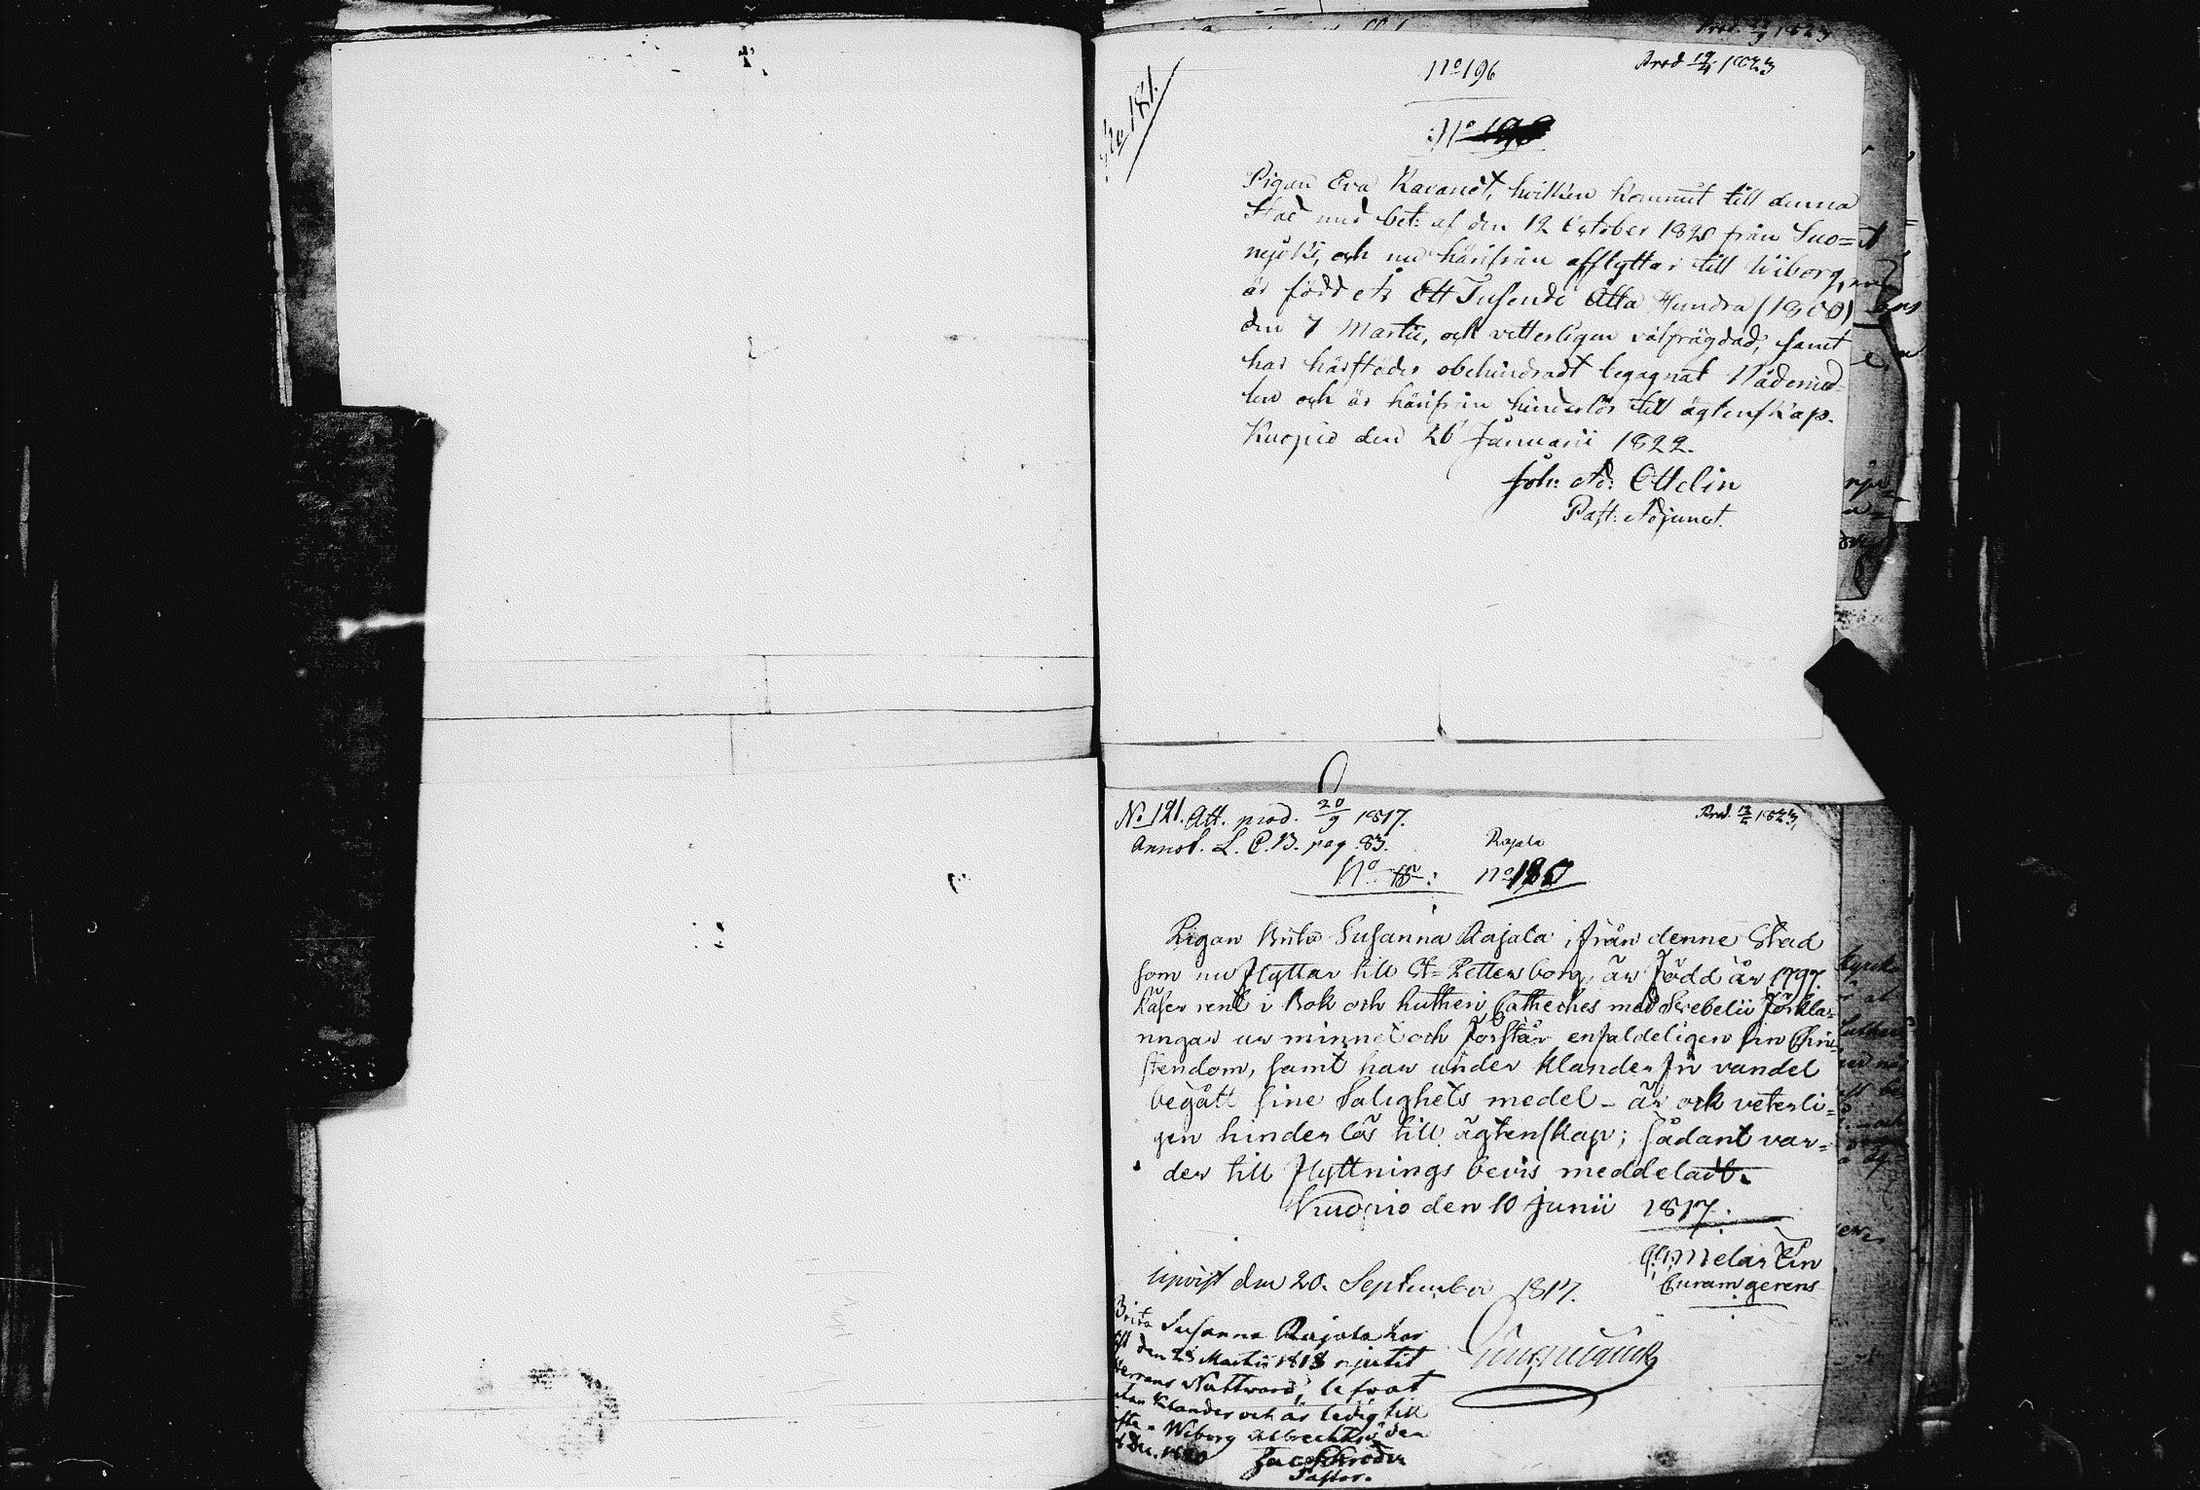 No 181.
No 196
Prod 19/4 1823
No
Pigan Eva Kavanet, hvilken kommit till denna
Stad med bet: af den 12 October 1820 från Suo=
njoki, och nu härifrån afflyttar till Wiborg,
är född År Ett Tusende Åtta Hundra (1800)
den 7 Martii, och vetterligen välfrägdad, samt
har härstädes obehindradt begagnat Nådemed=
len och är härifrån hinderlös till ägtenskap.
Kuopio den 26 Januarii 1822.
Joh: Ad: Ottelin
Past: Adjunct.
No 121. Att. prod. 20/9 1817.
Prod. 1823
Annot. L. P. B. pag. 83.
Rajala
No 15: No 180
Pigan Brita Susanna Rajala ifrån denne Stad
som nu flyttar till St=Pettersborg, är född år 1797.
Läser rent i Bok och Lutheri Catheches med Svebelii förkla=
ringar ur minnet och förstår enfaldeligen sin Chri=
stendom, samt har under klander fri vandel
begått sine Salighets medel - är ock veterli=
gen hinderlös till ägtenskap; sådant var=
der till flyttnings bevis meddeladt.
Kuopio den 10 Junii 1817.
Melartin
Curam gerens
Upvist den 20. September 1817.
Brita Susanna Rajala har
den 23 Martii 1818 njutit
Herrans Nattvard, lefvat
utan klander och är ledig till
ägta. Wiborg den
Dec. 1820
Jac Schröder
Pastor.